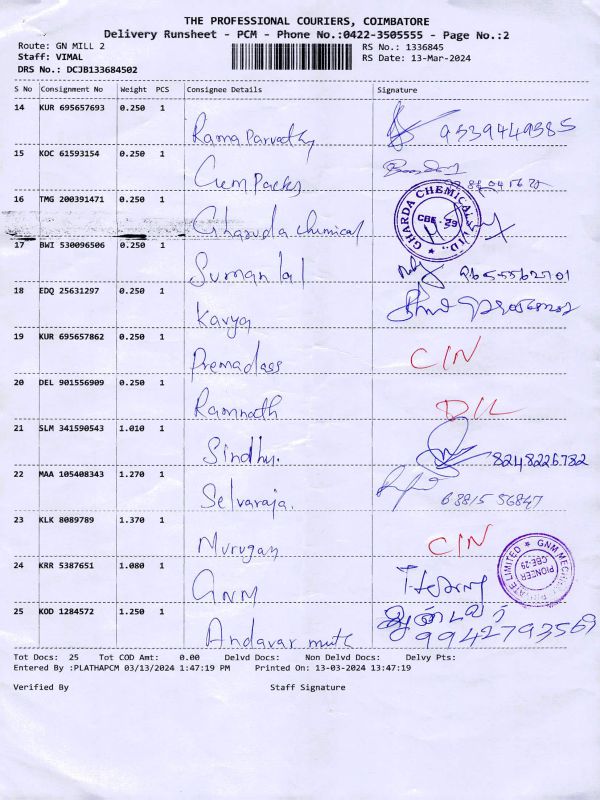 THE PROFESSIONAL COURIERS, COIMBATORE
Delivery Runsheet - PCM - Phone No.:0422-3505555 - Page No.:2
Route: GN MILL 2 RS No.: 1336845
Staff: VIMAL RS Date: 13-Mar-2024
DRS No.: DCJB133684502
S No Consignment No Weight PCS Consignee Details Signature
14 KUR 695657693 0.250 1
Rama Parvathy 9539449585
15 KOC 61593154 0.250 1
Gem Packs
16 TMG 200391471 0.250 1
Gharuda chemical GHARDA CHEMICAL CBE-29
17 BWI 530096506 0.250 1
Suman lal
18 EDQ 25631297 0.250 1
Kavya
19 KUR 695657862 0.250 1
Premadass C/N
20 DEL 901556909 0.250 1
Ramnath D/L
21 SLM 341590543 1.010 1
Sindhu. 8248226782
22 MAA 105408343 1.270 1
Selvaraja. 63815 56847
23 KLK 8089789 1.370 1
Murugan C/N
24 KRR 5387651 1.080 1
GNM GNM MEC PRIVATE LIMITED PIONEER CBE-29
25 KOD 1284572 1.250 1
Andavar muth ஆண்டவர்
9942793569
Tot Docs: 25 Tot COD Amt: 0.00 Delvd Docs: Non Delvd Docs: Delvy Pts:
Entered By :PLATHAPCM 03/13/2024 1:47:19 PM Printed On: 13-03-2024 13:47:19
Verified By Staff Signature